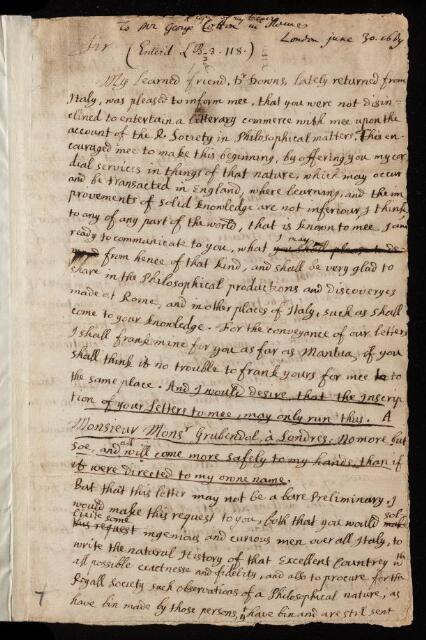 A copy of my letter
To Mr George Cotton in Rome
London june 30. 1669
Sir (Enter'd LB. 3. 118.)
My learned friend, Dr Downs, lately returned from
Italy, was pleased to inform mee, that you were not disin-
clined to entertain a litterary commerce with mee upon the
account of the R. Society in Philosophical matters. This en-
couraged mee to make this beginning, by offering you my cor
dial services in things of that nature, which may occur
and be transacted in England, where learning, and the im
provements of solid knowledge are not inferiour, I think,
to any of any part of the world, that is known to mee. I am
ready to communicate to you, what I may you shall please to de-
from hence of that kind, and shall be very glad to
share in the Philosophical productions and discoveryes
made at Rome, and in other places of Italy, such as shall
come to your knowledge. For the conveyance of our letters
I shall frank mine for you as far as Mantua, if you
shall think it no trouble to frank yours for mee to to
the same place. And I would desire, that the inscrip
tion of your letters to mee, may only run thus. A
Monsieur Monsr Grubendol, à Londres: No more but
soe, and will come more safely to my hands, than if
it were directed to my owne name.
But that this letter may not be a bare Preliminary, I
would make this request to you, both that you would sol-
cite some this request ingenious and curious men over all Italy, to
write the natural History of that Excellent Countrey wth
all possible exactnesse and fidelity, and also to procure for the
Royall Society such observations of a Philosophical nature, as
have bin made by those persons, yt have bin and are still sent
7